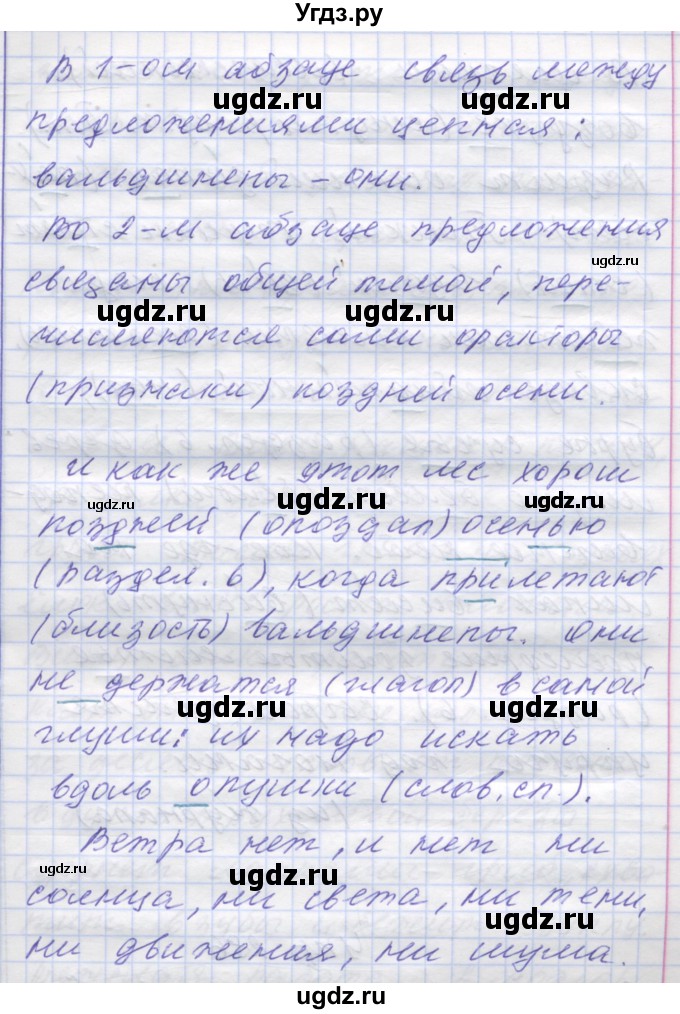 Угдз.ру
В 1-ом абзаце связь между
ugdz.ru ugdz.ru
предложениями цепная:
вальдшнепы – они.
ugdz.ru
Во 2-м абзаце предложения
ugdz.ru
связаны общей темой, пере-
ugdz.ru ugdz.ru
числяются сами
(признаки) поздней осени.
И как же этот лес хорош
ugdz.ru ugdz.ru ugdz.ru
поздней (опоздал) осенью
(раздел. ь), когда прилетают
ugdz.ru ugdz.ru
(близость) вальдшнепы. Они
не держатся (глагол) в самой
ugdz.ru ugdz.ru
глуши: их надо искать
вдоль опушки (слов. сл.).
ugdz.ru ugdz.ru
Ветра нет, и нет ни
ugdz.ru ugdz.ru ugdz.ru
солнца, ни света, ни тени,
ugdz.ru
ни движения, ни шума.
ugdz.ru